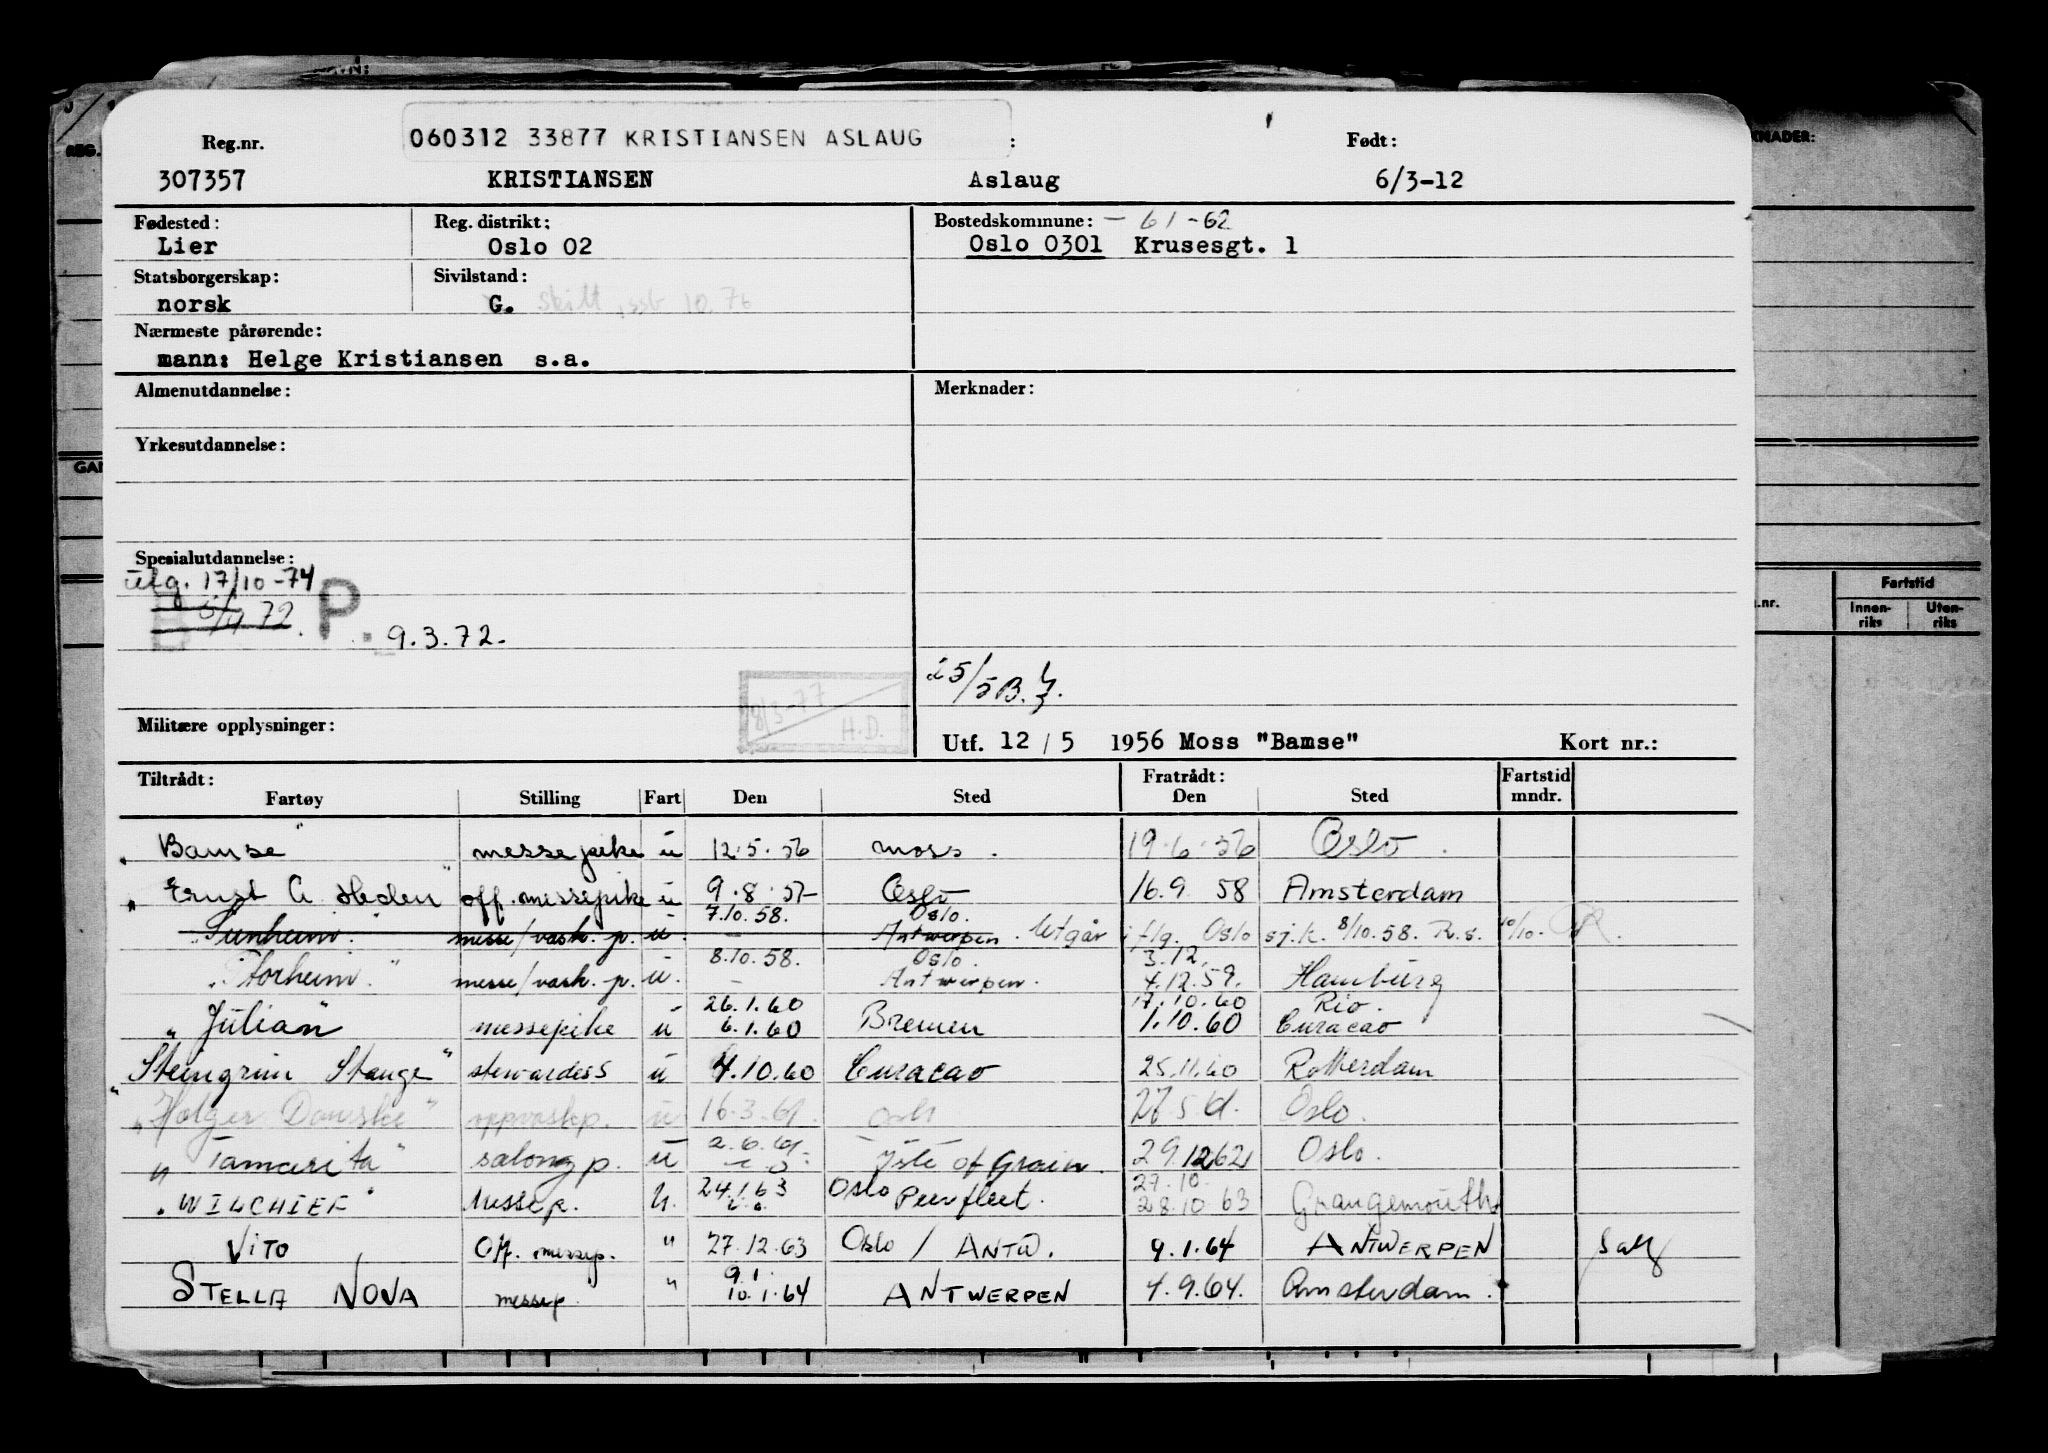 060312 33877 KRISTIANSEN ASLAUG
Reg.nr. : Født:
307357 KRISTIANSEN Aslaug 6/3-12
Fødested: Reg. distrikt: Bostedskommune: - 61-62
Lier Oslo 02 Oslo 0301 Krusesgt. 1
Statsborgerskap: Sivilstand:
norsk G. skilt, ssb 10.76
Nærmeste pårørende:
mann: Helge Kristiansen s.a.
Almenutdannelse: Merknader:
Yrkesutdannelse:
Spesialutdannelse:
utg. 17/10-74
P. 9.3.72.
25/5 B.
8/3-77 H.D.
Militære opplysninger: Utf. 12/5 1956 Moss "Bamse" Kort nr.:
Tiltrådt: Fratrådt: Fartstid
Fartøy Stilling Fart Den Sted Den Sted mndr.
"Bamse" messepike u 12.5.56 Moss. 19.6.56 Oslo.
"Ernst G. Heden" off. messepike u 9.8.57 Oslo 16.9 58 Amsterdam
7.10.58. Oslo.
messe/vask. p. u. - Antwerpen. Utgår iflg. Oslo sj.k. 8/10.58. R.s. 10/10.
8.10.58. Oslo. 3.12.
"Torheim." messe/vask. p. u. - Antwerpen. 4.12.59. Hamburg
26.1.60 17.10.60 Rio.
"Julian" messepike u 6.1.60 Bremen 1.10.60 Curacao
"Steingrim Stange" stewardess u 4.10.60 Curacao 25.11.60 Rotterdam
"Holger Danske" oppvaskp. u 16.3.61. Oslo 27.5.61. Oslo.
2.6.61.
"Tamarita" salongp. u Isle of Grain. 29.12 62 Oslo.
24.1.63 Oslo 27.10
"WILCHIEF" Messep. u. Purfleet. 28.10 63 Grangemouth
VITO Off. messep. " 27.12.63 Oslo / ANTW. 9.1.64 ANTWERPEN
9.1.
STELLA NOVA messep. " 10.1.64 ANTWERPEN 4.9.64. Amsterdam.
KNADER:
REG.
GAN
Fartstid
.nr. Innen-riks Uten-riks